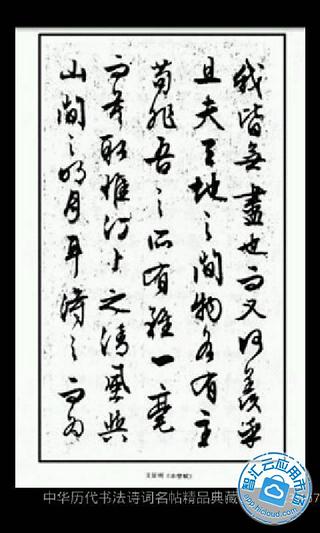 我皆無盡也而又何羨乎
且夫天地之間物各有主
苟非吾之所有雖一毫
而莫取惟江上之清風與
山間之明月耳得之而為
文征明《赤壁賦》
中华历代书法诗词名帖精品典藏
智汇云应用市场
app.hicloud.com